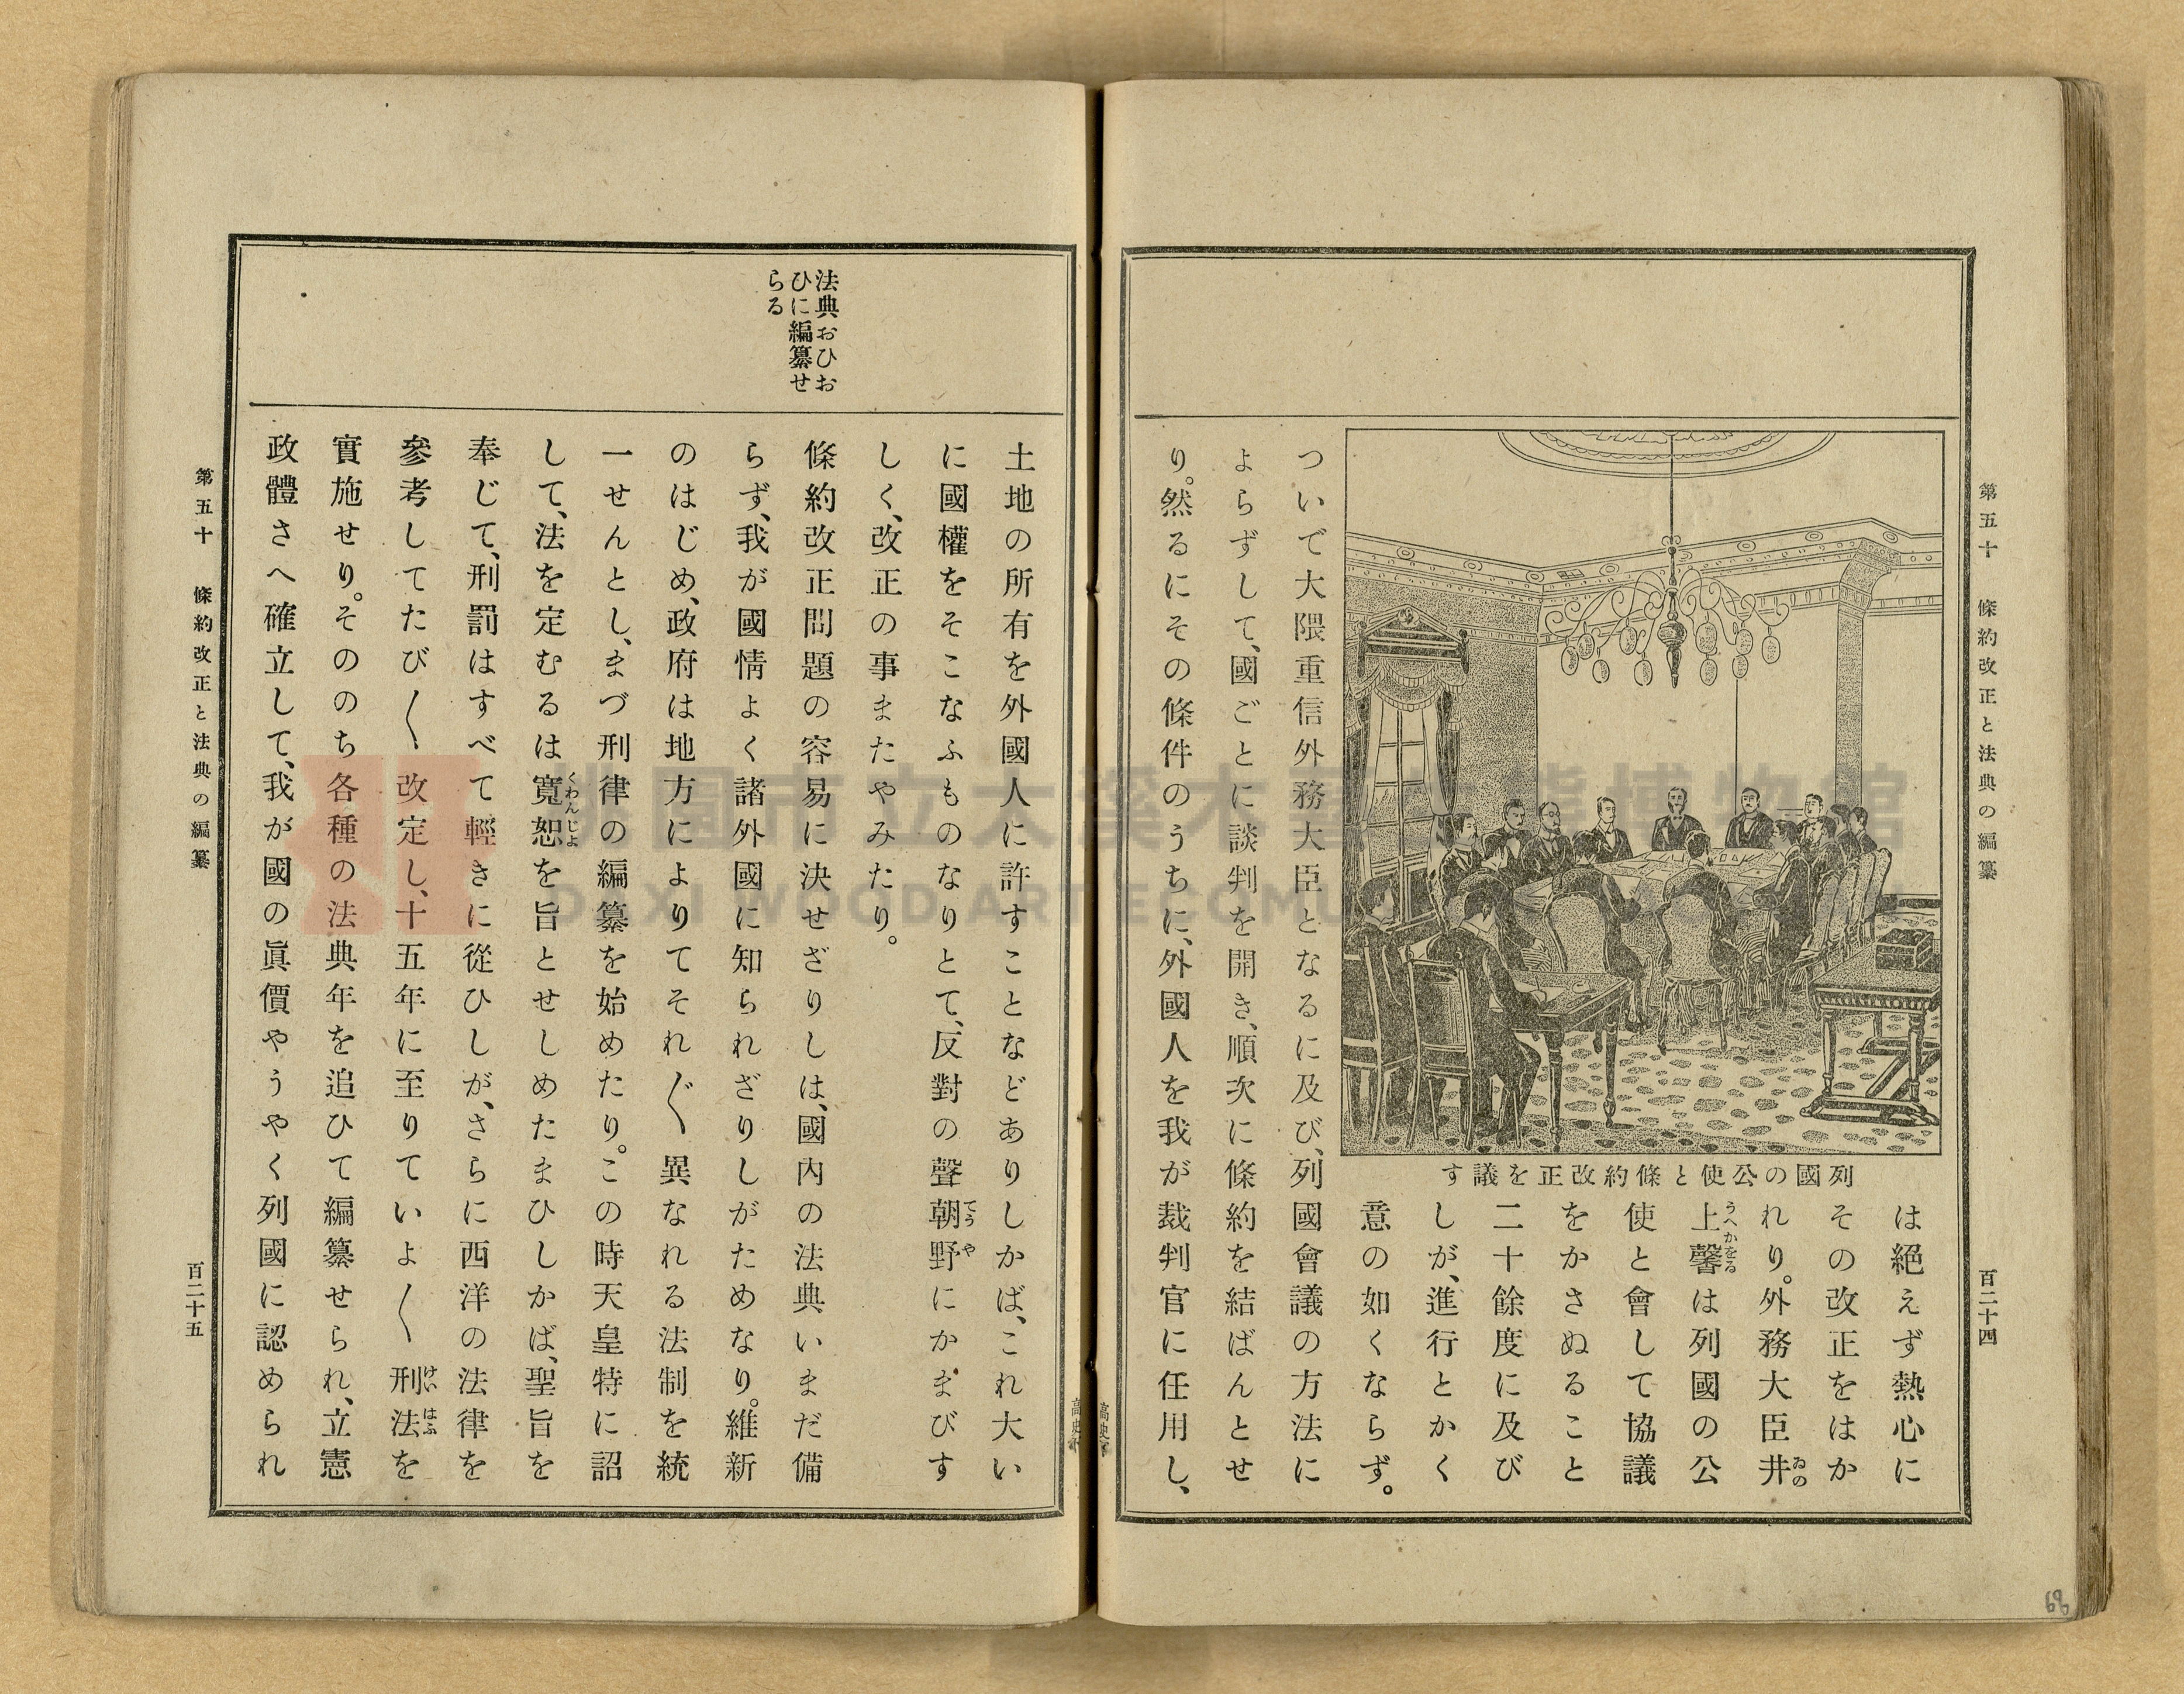 第五十　條約改正と法典の編纂
百二十四
は絕えず熱心に
その改正をはか
れり。外務大臣井
上馨は列國の公
使と會して協議
をかさぬること
二十餘度に及び
しが、進行とかく
意の如くならず。
列國の公使と條約改正を議す
ついで大隈重信外務大臣となるに及び、列國會議の方法に
よらずして、國ごとに談判を開き、順次に條約を結ばんとせ
り。然るにその條件のうちに、外國人を我が裁判官に任用し、
土地の所有を外國人に許すことなどありしかば、これ大い
に國權をそこなふものなりとて、反對の聲朝野にかまびす
しく、改正の事またやみたり。
法典おひお
ひに編纂せ
らる
條約改正問題の容易に決せざりしは、國內の法典いまだ備
らず、我が國情よく諸外國に知られざりしがためなり。維新
のはじめ、政府は地方によりてそれ〴〵異なれる法制を統
一せんとし、まづ刑律の編纂を始めたり。この時天皇特に詔
して、法を定むるは寬恕を旨とせしめたまひしかば、聖旨を
奉じて、刑罰はすべて輕きに從ひしが、さらに西洋の法律を
參考してたび〱改定し、十五年に至りていよ〱刑法を
實施せり。そののち各種の法典年を追ひて編纂せられ、立憲
政體さへ確立して、我が國の眞價やうやく列國に認められ
第五十　條約改正と法典の編纂
百二十五
うへかをる
ゐの
てうや
くわんじよ
けいはふ
68